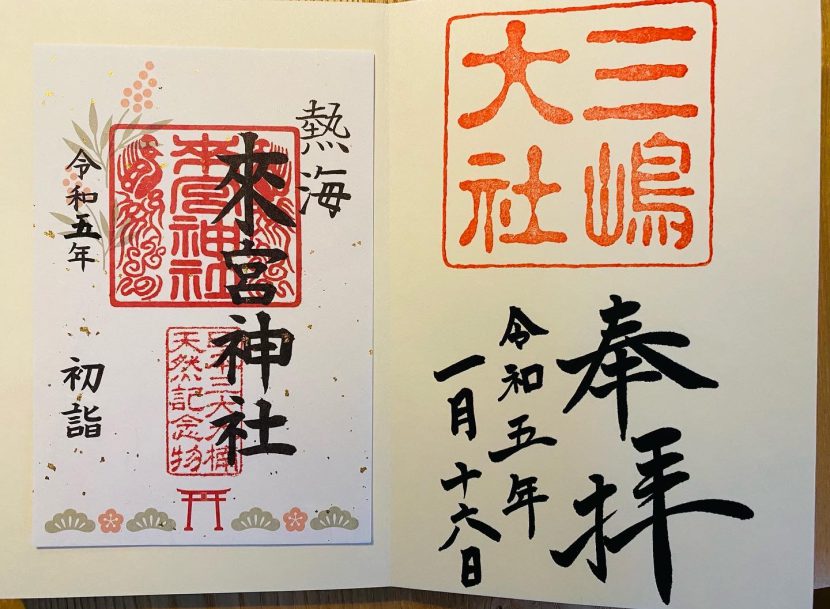 三嶋
大社
奉拝
令和五年
一月十六日
熱海
來宮神社
来宮神社
天然記念物
令和五年
初詣